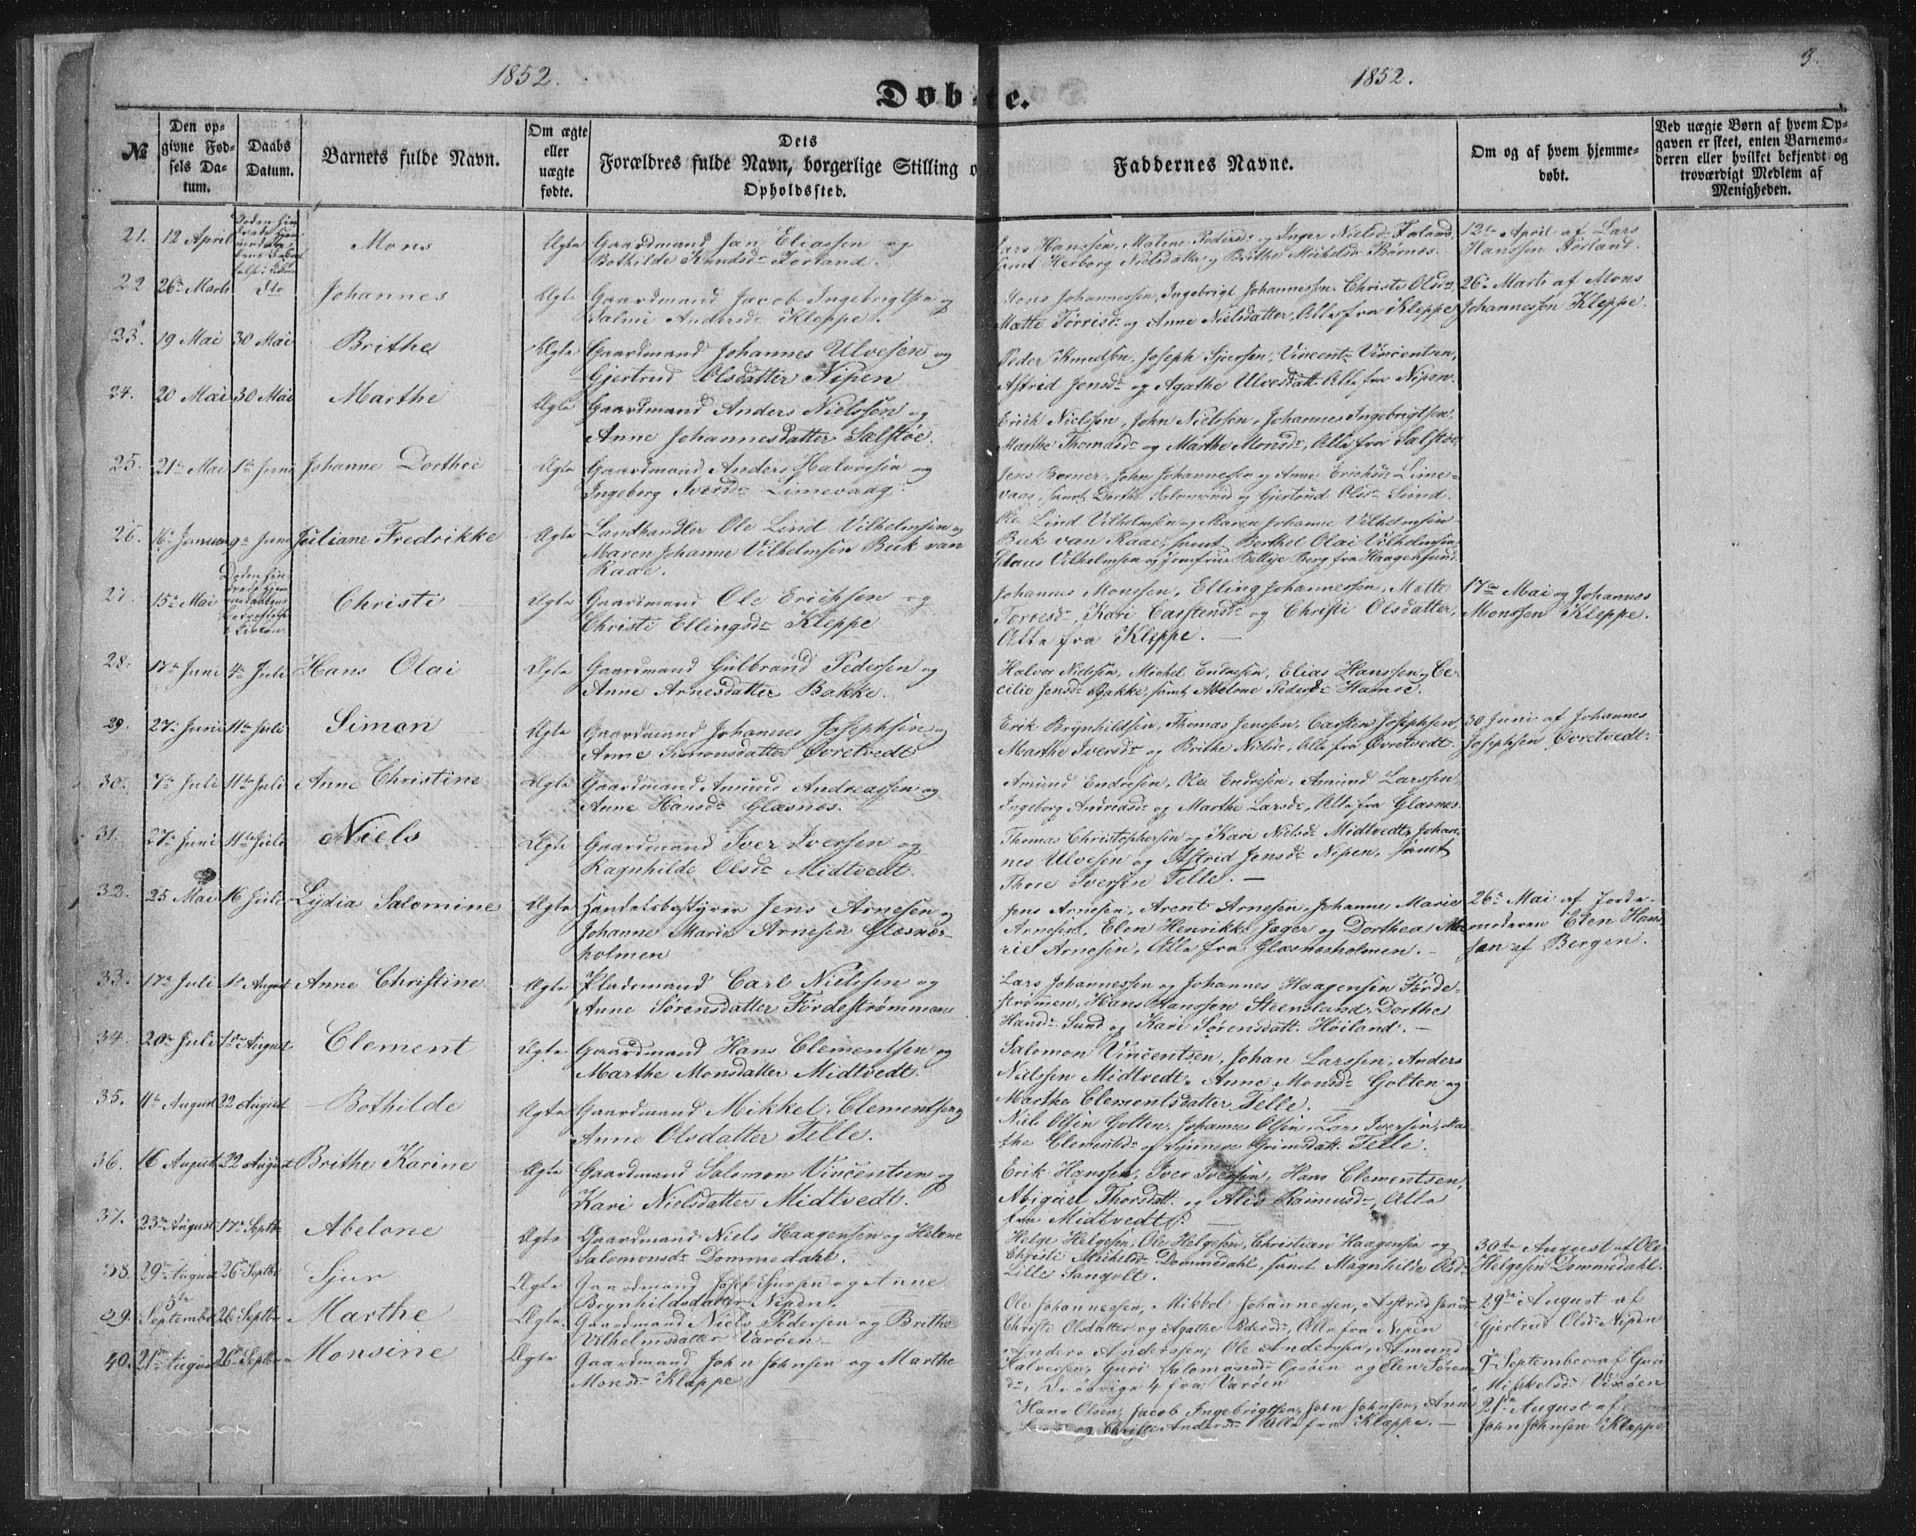 1852.
Døbte.
1852.
3.
№
Den opgivne Fødsels Datum.
Daabs Datum.
Barnets fulde Navn.
Om ægte eller uægte fødte.
Dets Forældres fulde Navn, borgerlige Stilling o
Opholdssted.
Faddernes Navne.
Om og af hvem hjemmedøbt.
Ved uægte Børn af hvem Opgaven er skeet, enten Barnemoderen eller hvilket bekjendt og troværdigt Medlem af Menigheden.
21. 12 April Mons Ægte Gaardmand Jan Eliassen og
Bothilde Knudsd. Førland.
Lars Hanssen, Malene Pedersd. og Inger Nielsd. Førland,
samt Herborg Nielsdatter og Brithe Michelsd. Børnes.
12te April af Lars
Hanssen Førland.
22 26de Marts dto Johannes Ægte Gaardmand Jacob Ingebrigtsen og
Malni Andersd. Kleppe.
Mons Johannessen, Ingebrigt Johannessen, Christi Olsd.,
Mætte Tørrisd. og Anne Nielsdatter, Alle fra Kleppe
26de Marts af Mons
Johannessen Kleppe.
23. 19 Mai 30 Mai Brithe Ægte Gaardmand Johannes Ulvesen og
Gjertrud Olsdatter Nipen
Peder Knudsen, Joseph Sjursen, Vincent Vincentsen,
Astrid Jensd. og Agathe Ulvesdatt. Alle fra Nipen.
24. 20 Mai 30 Mai Marthe Ægte Gaardmand Anders Nielssen og
Anne Johannesdatter Salstøe.
Erich Nielssen, John Nielssen, Johannes Ingebrigtsen,
Marthe Thomasd. og Marthe Monsd., Alle fra Salstøe
25. 21de Mai 1ste Juni Johanne Dorthea Ægte Gaardmand Anders Halvorsen og
Ingeborg Iversd. Limevaag.
Jens Børnes, John Johannessen og Anne Erichsd. Lime-
vaag, samt Dorthe Aamund og Gjertrud Olsd. Sund.
26. 9de Juni Juliane Fredrikke Ægte Landhandler Ole Lind Vilhelmsen og
Maren Johanne Vilhelmsen Buk van
Raae.
Ole Lind Vilhelmsen og Maren Johanne Vilhelmsen
Buk van Raae, samt Berthel Olai Vilhelmsen
Claus Vilhelmsen og Jomfrue Berg fra Haugesund.
27. 15de Mai Christi Ægte Gaardmand Ole Erichsen og
Christi Ellingsd. Kleppe
Johannes Monssen, Elling Johannessen, Mætte
Torresd., Kari Carstensd. og Christi Olsdatter,
Alle fra Kleppe. —
17de Mai og Johannes
Monssen Kleppe.
28. 17de Juni 4de Juli Hans Olai Ægte Gaardmand Gulbrand Pedersen og
Anne Arnesdatter Bakke.
Halvor Nielsen, Michel Endresen, Elias Hanssen, Ce-
cilie Jensd. Bakke, samt Abelone Pedersd. Hamre.
29. 27de Juni 11te Juli Simon Ægte Gaardmand Johannes Josephsen og
Anne Simonsdatter Øvretvedt
Erik Brynhildsen, Thomas Jenssen, Carsten Josephsen,
Marthe Iversd. og Brithe Nielsd., Alle fra Øvretvedt.
30 Juni af Johannes
Josephsen Øvretvedt.
30. 7de Juli 11te Juli Anne Christine Ægte Gaardmand Amund Andreassen og
Anne Hansd. Glæsnes.
Amund Endresen, Ole Endresen, Amund Larssen
Ingeborg Andriasd. og Marthe Larsd., Alle fra Glæsnes.
31. 27de Juni 11te Juli Niels Ægte Gaardmand Iver Iversen og
Ragnhilde Olsd. Midtvedt.
Thomas Christophersen og Kari Nielsd. Midtvedt, Johan-
nes Ulvesen og Astrid Jensd. Nipen, samt
Thore Iversen Telle. —
32. 25 Mai 16 Juli Lydia Salomine Ægte Handelsbestyrer Jens Arnesen og
Johanne Marie Arnesen Glæsnes-
holmen
Jens Arnesen, Arent Arnesen, Johannes Marie
Arnesen, Elen Henrikke Jæger og Dorthea Ma-
rie Arnesen, Alle fra Glæsnesholmen. —
26de Mai af Jorde-
moderen Elen Han-
sen af Bergen.
33. 17de Juli 1 August Anne Christine Ægte Pladsmand Carl Nielssen og
Anne Sørensdatter Førdestrømmen
Lars Johannessen og Johannes Haagensen Førde-
strømmen, Hans Hanssen Steensland, Dorthe
Hansd. Sund og Kari Sørensdatt. Høiland. —
34. 20de Juli 1ste August Clement Ægte Gaardmand Hans Clementsen og
Marthe Monsdatter Midtvedt.
Salomon Vincentsen, Johan Larssen, Anders
Nielssen Midtvedt, Anne Monsd. Golten og
Marthe Clementsdatter Telle. —
35. 11te August 22 August Bothilde Ægte Gaardmand Mikkel Clementsen og
Anne Olsdatter Telle.
Niels Olsen Golten, Johannes Olsen, Lars Iversen, Mar-
the Clementsd. og Synneve Grimsdatt. Telle.
36. 16 August 22 August Brithe Karine Ægte Gaardmand Salomon Vincentsen og
Kari Nielsdatter Midtvedt.
Erik Hanssen, Iver Iversen, Hans Clementsen,
Abigael Thorsdatt. og Alis Rasmusd., Alle
fra Midtvedt. —
37. 23de August 17de Septbr Abelone Ægte Gaardmand Niels Haagensen og Helene
Salomonsd. Dommedahl.
Helge Helgesen, Ole Helgesen, Christian Haagensen og
Christi Michelsd. Dommedahl, samt Magnhilde Olsd.
Lille Sangolt.
30te August af Ole
Helgesen Dommedahl.
38. 29de August 26de Septbr Sjur Ægte Gaardmand Josef Sjursen og Anne
Brynhildsdatter Nipen.
Ole Johannessen, Mikkel Johannessen, Astrid Jensd.
Christi Olsdatter og Agathe Pedersd., Alle fra Nipen
29de August af
Gjertrud Olsd. Nipen
39. 5te September 26 Septbr Marthe Ægte Gaardmand Niels Pedersen og Brithe
Vilhelmsdatter Varøen
Anders Anderssen, Ole Andersen, Amund
Halversen, Guri Salomonsd. og Elen Søren-
sd., De øvrige 4 fra Varøen
9de September af Guri
Mikkelsd. Vixøen
40. 21de August 26de Septbr Monsine Ægte Gaardmand John Johnsen og Marthe
Monsd. Kleppe
Hans Olsen, Jacob Ingebrigtsen, John Johnsen, Anne
og Christi Andersd. Alle fra Kleppe. —
21de August af
John Johnsen Kleppe